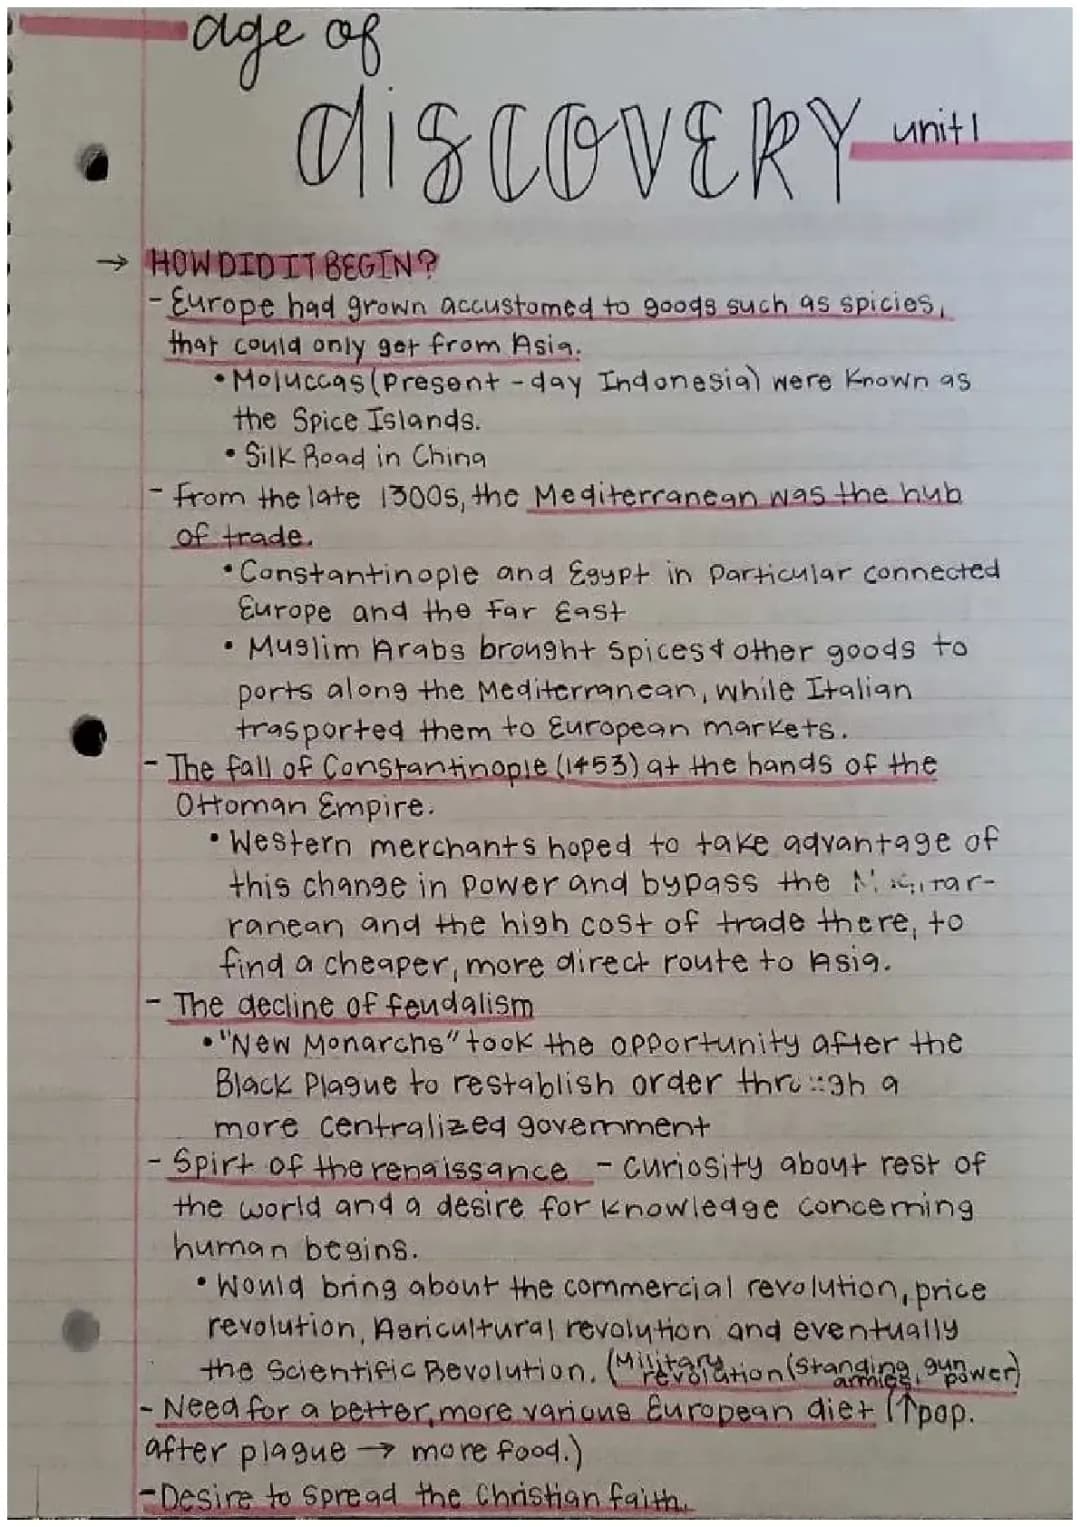 age of
discovery unit 1
→ HOW DID IT BEGIN?
- Europe had grown accustomed to goods such as spicies,
that could only get from Asia.
• Moluccas (Present-day Indonesia) were known as
the Spice Islands.
• Silk Road in China
- from the late 1300s, the Mediterranean was the hub
of trade.
• Constantinople and Egypt in particular connected
Europe and the Far East
• Muslim Arabs brought spices & other goods to
ports along the Mediterranean, while Italian
trasported them to European markets.
- The fall of Constantinople (1453) at the hands of the
Ottoman Empire.
• Western merchants hoped to take advantage of
this change in power and bypass the
ranean and the high cost of trade there, to
find a cheaper, more direct route to Asia.
- The decline of feudalism
• "New Monarchs" took the opportunity after the
Black Plague to restablish order through a
more centralized government
- Spirt of the renaissance - curiosity about rest of
the world and a desire for knowledge concerning
human begins.
• Would bring about the commercial revolution, price
revolution, Agricultural revolution and eventually
the Scientific Revolution. (Military revolution (standing armies, gun power)
- Need for a better, more various European diet (↑pop.
after plague → more food.)
- Desire to spread the Christian faith.